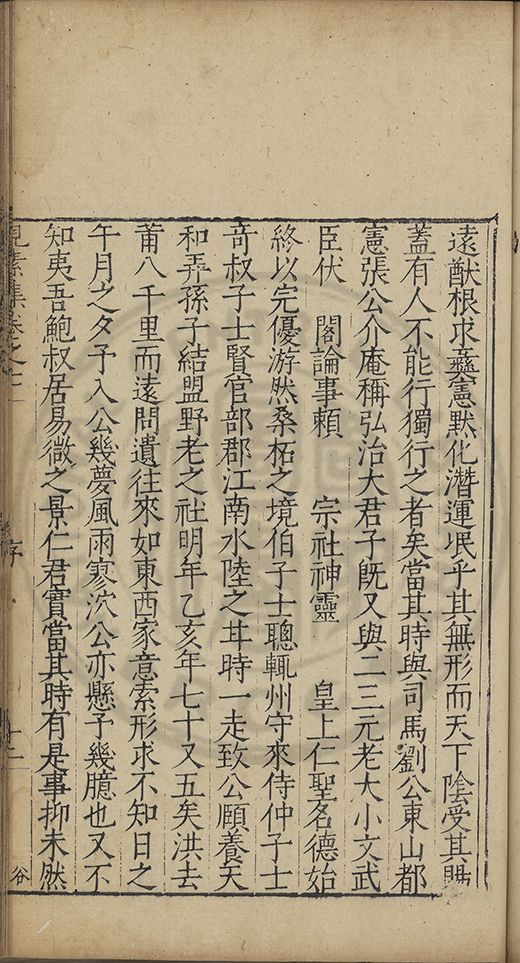 遠猷根求彝憲默化潛運泯乎其無形而天下陰受其賜
蓋有人不能行獨行之者矣當其時與司馬劉公東山都
憲張公介庵稱弘治大君子既又與二三元老大小文武
臣伏　閤論事賴　宗社神靈　皇上仁聖名德始
終以完優游然桑柘之境伯子士聰輒州守來侍仲子士
奇叔子士賢官部郡江南水陸之丼時一走致公頤養天
和弄孫子結盟野老之社明年乙亥年七十又五矣洪去
莆八千里而遠問遺往來如東西家意索形求不知日之
午月之夕予入公幾夢風雨寥泬公亦懸予幾臆也又不
知夷吾鮑叔居易微之景仁君實當其時有是事抑未然
見素集卷之
序
十二
谷